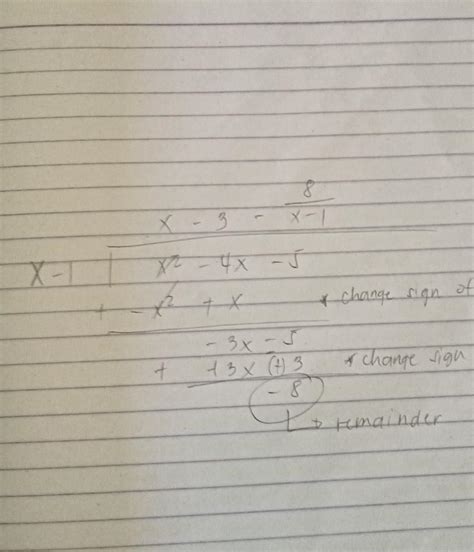 8
x - 3 - x-1
x-1 | x² - 4x - 5
+ -x² + x * change sign of
-3x - 5
+ +3x (+) 3 * change sign
- 8
↳ remainder